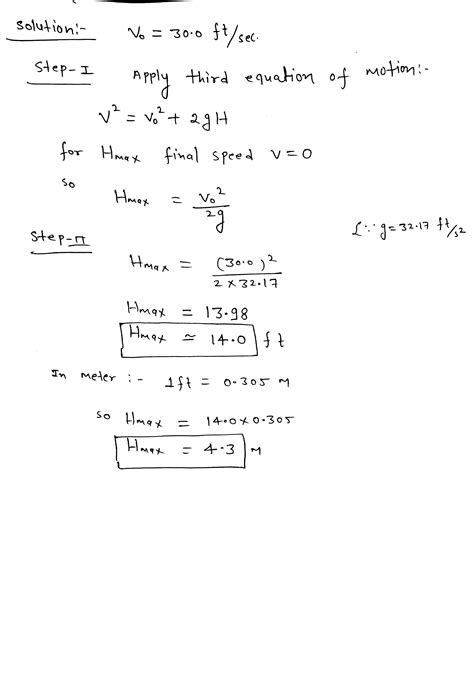 Solution:- V₀ = 30.0 ft/sec.
Step-I Apply third equation of motion:-
V² = V₀² + 2gH
for Hmax final speed V=0
so
Hmax = V₀²/2g
Step-II [∵ g=32.17 ft/s2
Hmax = (30.0)²/2×32.17
Hmax = 13.98
Hmax ≃ 14.0 ft
In meter :- 1ft = 0.305 M
so Hmax = 14.0×0.305
Hmax = 4.3 M